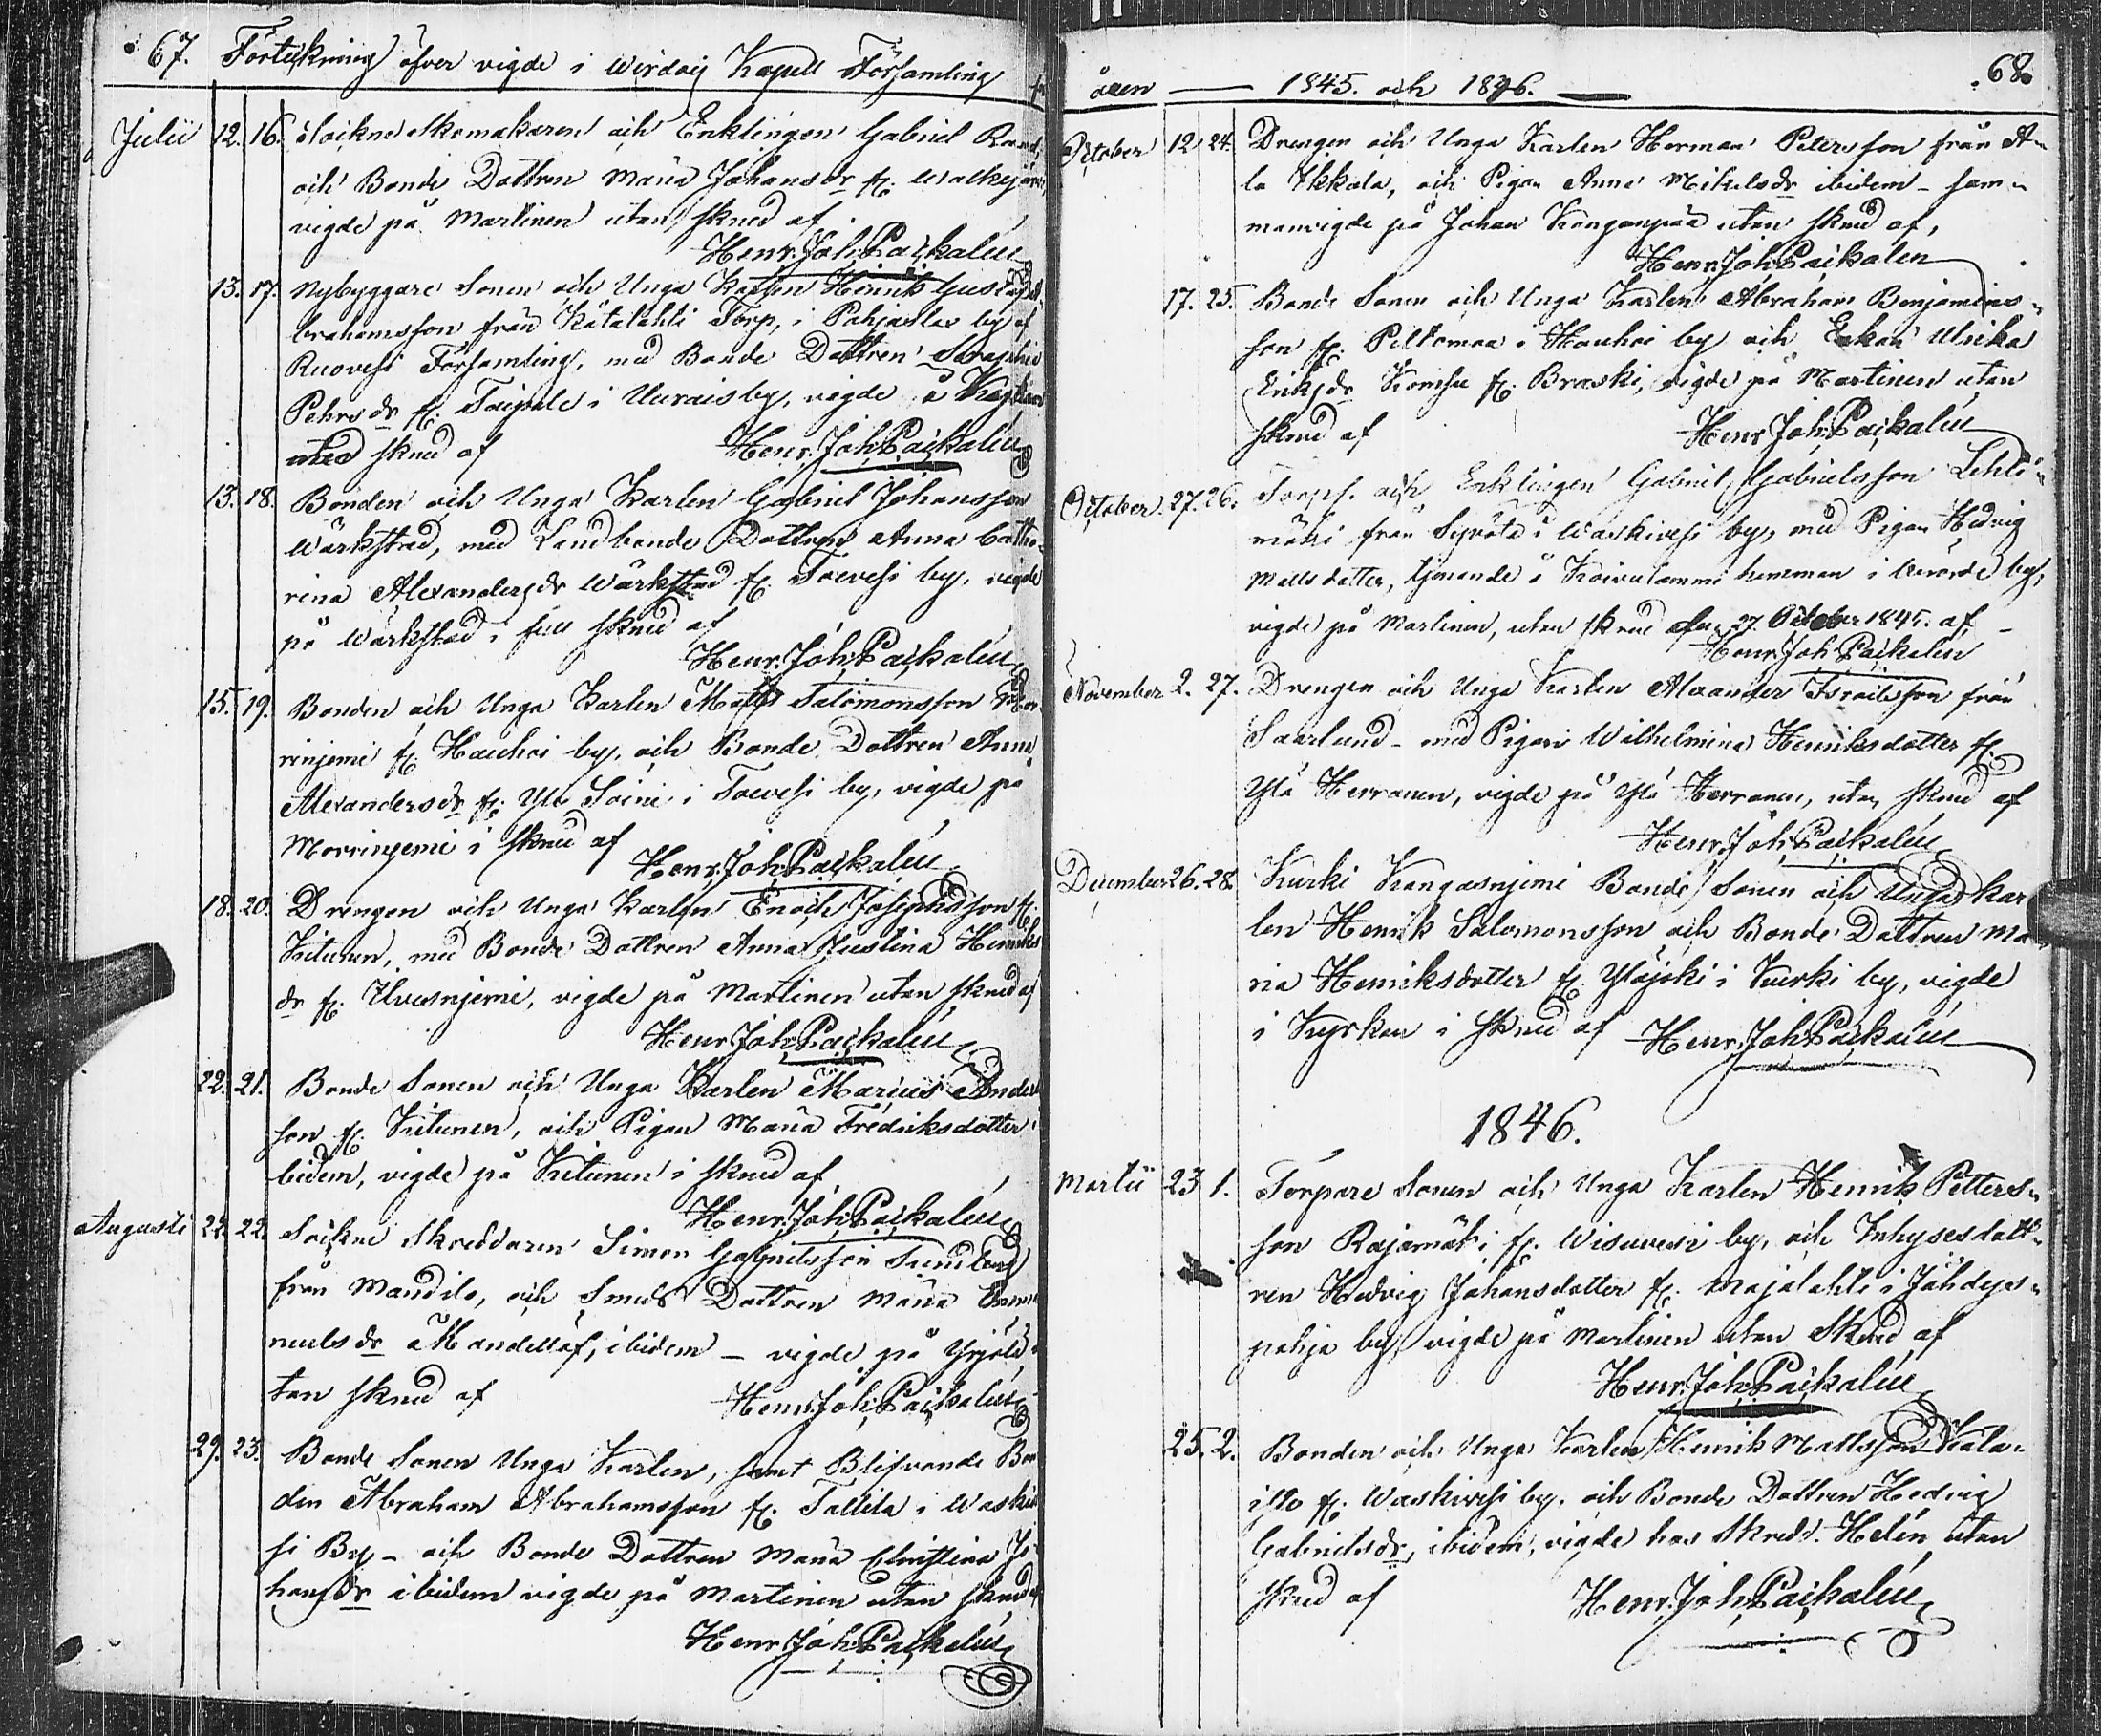 67. Förtekning öfver vigde i Wirdois Kapell Församling
Julii 12. 16. Sockne Skomakaren och Enklingen Gabriel
och Bonde Dottren Maria Johansdr fr.
vigde på Martinen utan skrud af
Henr. Joh. Packalén
13. 17. Nybyggare Sonen och Unga Karlen Henrik Gustaf
brahamsson från Kätälahti Torp, i Pohjaslax by af
Ruovesi Församling, med Bonde Dottren
Pehrsdr fr. Taipale i Uurais by, vigde
skrud af Henr. Joh. Packalén
13. 18. Bonden och Unga Karlen Gabriel Johansson
Wärkstad, med Landbonde Dottren Anna Catha-
rina Alexandersdr Wärkstad fr. Toevesi by, vigde
på Wärkstad i full skrud af
Henr. Joh. Packalén
15. 19. Bonden och Unga Karlen Matts Salomonsson Mor
rinjemi fr. Hauhoi by, och Bonde Dottren Anna
Alexandersdr fr. Yli Soini i Toevesi by, vigde på
Morrinjemi i skrud af
Henr. Joh. Packalén
18. 20. Drengen och Unga Karlen Enoch Josephsson fr.
Kitunen, med Bonde Dottren Anna Justina Henriks
dr fr. , vigde på Martinen utan skrud af
Henr. Joh. Packalén
22. 21. Bonde Sonen och Unga Karlen Marius Anders
son fr. Kitunen, och Pigan Maria Fredriksdotter i
bidem, vigde på Kitunen i skrud af
Henr. Joh. Packalén
Augusti 22. 22. Sockne Skreddaren Simon Gabrielsson Sundberg
från Mandilo, och Smeds Dottren Maria Emma
nuelsdr Mandellöf, ibidem – vigde på u
tan skrud af Henr. Joh. Packalén
29. 23. Bonde Sonen Unga Karlen, samt Blifvande Bon
den Abraham Abrahamsson fr. Tallila i Waskive
si By – och Bonde Dottren Maria Christina Jo
hansdr ibidem vigde på Martinen utan skrud af
Henr. Joh. Packalén
68.
åren — 1845. och 1846. —
October 12 24. Drengen och Unga Karlen Herman Petersson från A-
la Ikkala, och Pigan Anna Mikelsdr ibidem – sam-
manvigde på Johan Kangaspää utan skrud af,
Henr. Joh. Packalén
17. 25. Bonde Sonen och Unga Karlen Abraham Benjamins-
son fr. Peltomaa i Hauhoi by och Enkan Ulrika
Eriksdr fr. Braski, vigde på Martinen utan
skrud af Henr. Joh. Packalén
October. 27. 26. Torp. och Enklingen Gabriel Gabrielsson Lehti-
mäki från i Waskivesi by, med Pigan Hedvig
Mattsdotter, tjenande å Koivulammi hemman i by,
vigde på Martinen, utan skrud den 27. October 1845. af –
Henr. Joh. Packalén
November 2. 27. Drengen och Unga Karlen Alexander Israelsson från
Saarlund – med Pigan Wilhelmina Henriksdotter fr.
Ylä Herranen, vigde på Ylä Herranen, utan skrud af
Henr. Joh. Packalén
December 26. 28. Kurki Kangasnjemi Bonde Sonen och Unga kar
len Henrik Salomonsson och Bonde Dottren Ma
ria Henriksdotter fr. Yläjoki i Kurki by, vigde
i Kyrkan i skrud af Henr. Joh. Packalén
1846.
Martii 23 1. Torpare Sonen och Unga Karlen Henrik Petters-
son Rajamäki fr. Wisuvesi by, och Inhysesdott-
ren Hedvig Johansdotter fr. Majalahti i Jähdys-
pohja by, vigde på Martinen utan Skrud af
Henr. Joh. Packalén
25. 2. Bonden och Unga Karlen Henrik Mattsson Kala-
isto fr. Waskivesi by. och Bonde Dottren Hedvig
Gabrielsdr, ibidem, vigde hos Skredd. Helén utan
skrud af Henr. Joh. Packalén